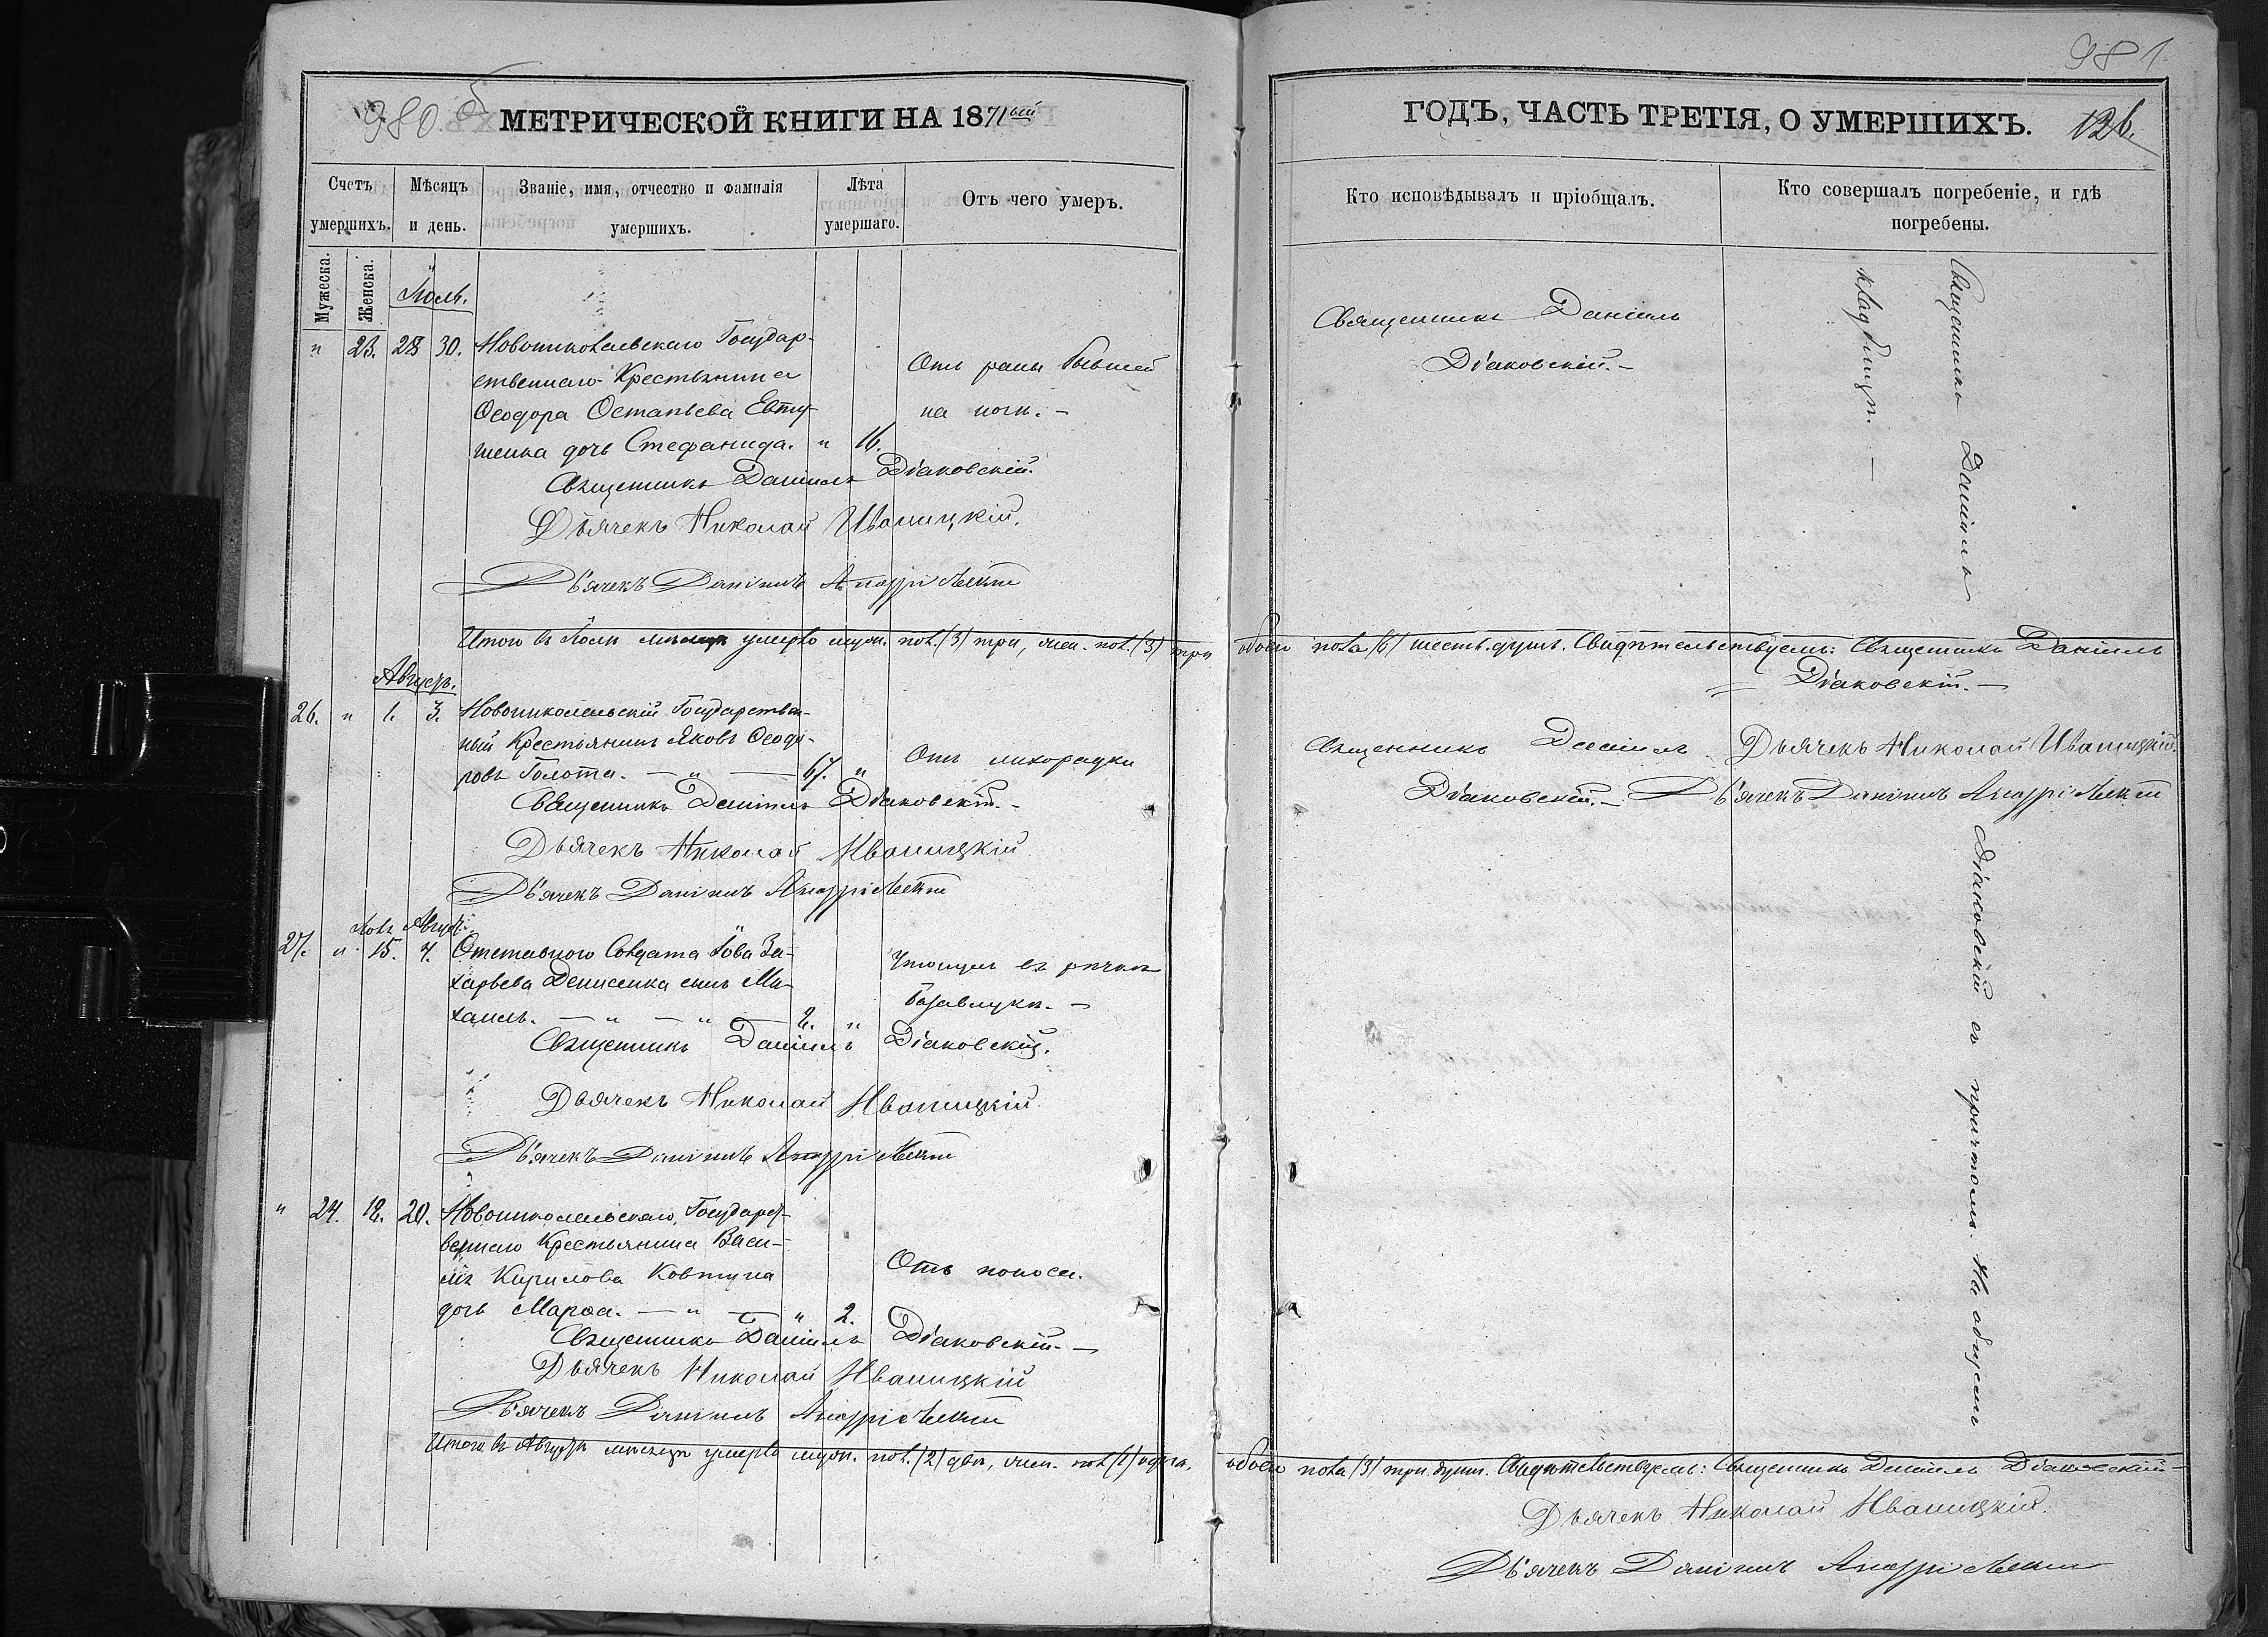 980 об
МЕТРИЧЕСКОЙ КНИГИ НА 1871ый
Счетъ умершихъ.
Мѣсяцъ и день.
Званіе, имя, отчество и фамилія умершихъ.
Лѣта умершаго.
Отъ чего умеръ.
Мужеска.
Женска.
Іюль.
" 23. 28 30. Новониколаевскаго Государ-
ственнаго Крестьянина
Ѳеодора Остапьева Евту-
шенка дочь Стефанида. " 16.
Отъ раны бывшей
на ноги. -
Священникъ Даніилъ Діаковскій.
Дьячекъ Николай Иваницкій.
Дьячекъ Даніилъ
Итого въ Іюлѣ мѣсяцѣ умерло муж. пол. (3) три, жен. пол. (3) три
Августъ.
26. " 1. 3. Новониколаевскій Государствен-
ный Крестьянинъ Яковъ Ѳеодо-
ровъ Голота. — " — 67. "
Отъ лихорадки
Священникъ Даніилъ Діаковскій. -
Дьячекъ Николай Иваницкій
Дьячекъ Даніилъ
Августъ.
27. " 15. 7. Отставного Солдата Іова За-
харьева Денисенка сынъ Ми-
хаилъ. — " — " — 2. "
Утонулъ въ рѣчкѣ
Базавлукѣ. -
Священникъ Даніилъ Діаковскій.
Дьячекъ Николай Иваницкій
Дьячекъ Даніилъ
" 24. 18. 20. Новониколаевскаго Государст-
веннаго Крестьянина Васи-
лія Кирилова Ковтуна
дочь Марѳа. — " — " 2.
Отъ поноса.
Священникъ Даніилъ Діаковскій. -
Дьячекъ Николай Иваницкій
Дьячекъ Даніилъ
Итого въ Августѣ мѣсяцѣ умерло муж. пол. (2) два, жен. пол. (1) одна,
981
ГОДЪ, ЧАСТЬ ТРЕТІЯ, О УМЕРШИХЪ.
126.
Кто исповѣдывалъ и пріобщалъ.
Кто совершалъ погребеніе, и гдѣ погребены.
Священникъ Даніилъ
Діаковскій. -
обоего пола (6) шесть душъ. Свидѣтельствуемъ: Священникъ Даніилъ
Діаковскій. -
Священникъ Даніилъ
Діаковскій. -
Дьячекъ Николай Иваницкій.
Дьячекъ Даніилъ
Священникъ Даніилъ Діаковскій съ причтомъ. На общемъ
кладбищѣ. —
обоего пола (3) три души. Свидѣтельствуемъ: Священникъ Даніилъ Діаковскій
Дьячекъ Николай Иваницкій.
Дьячекъ Даніилъ